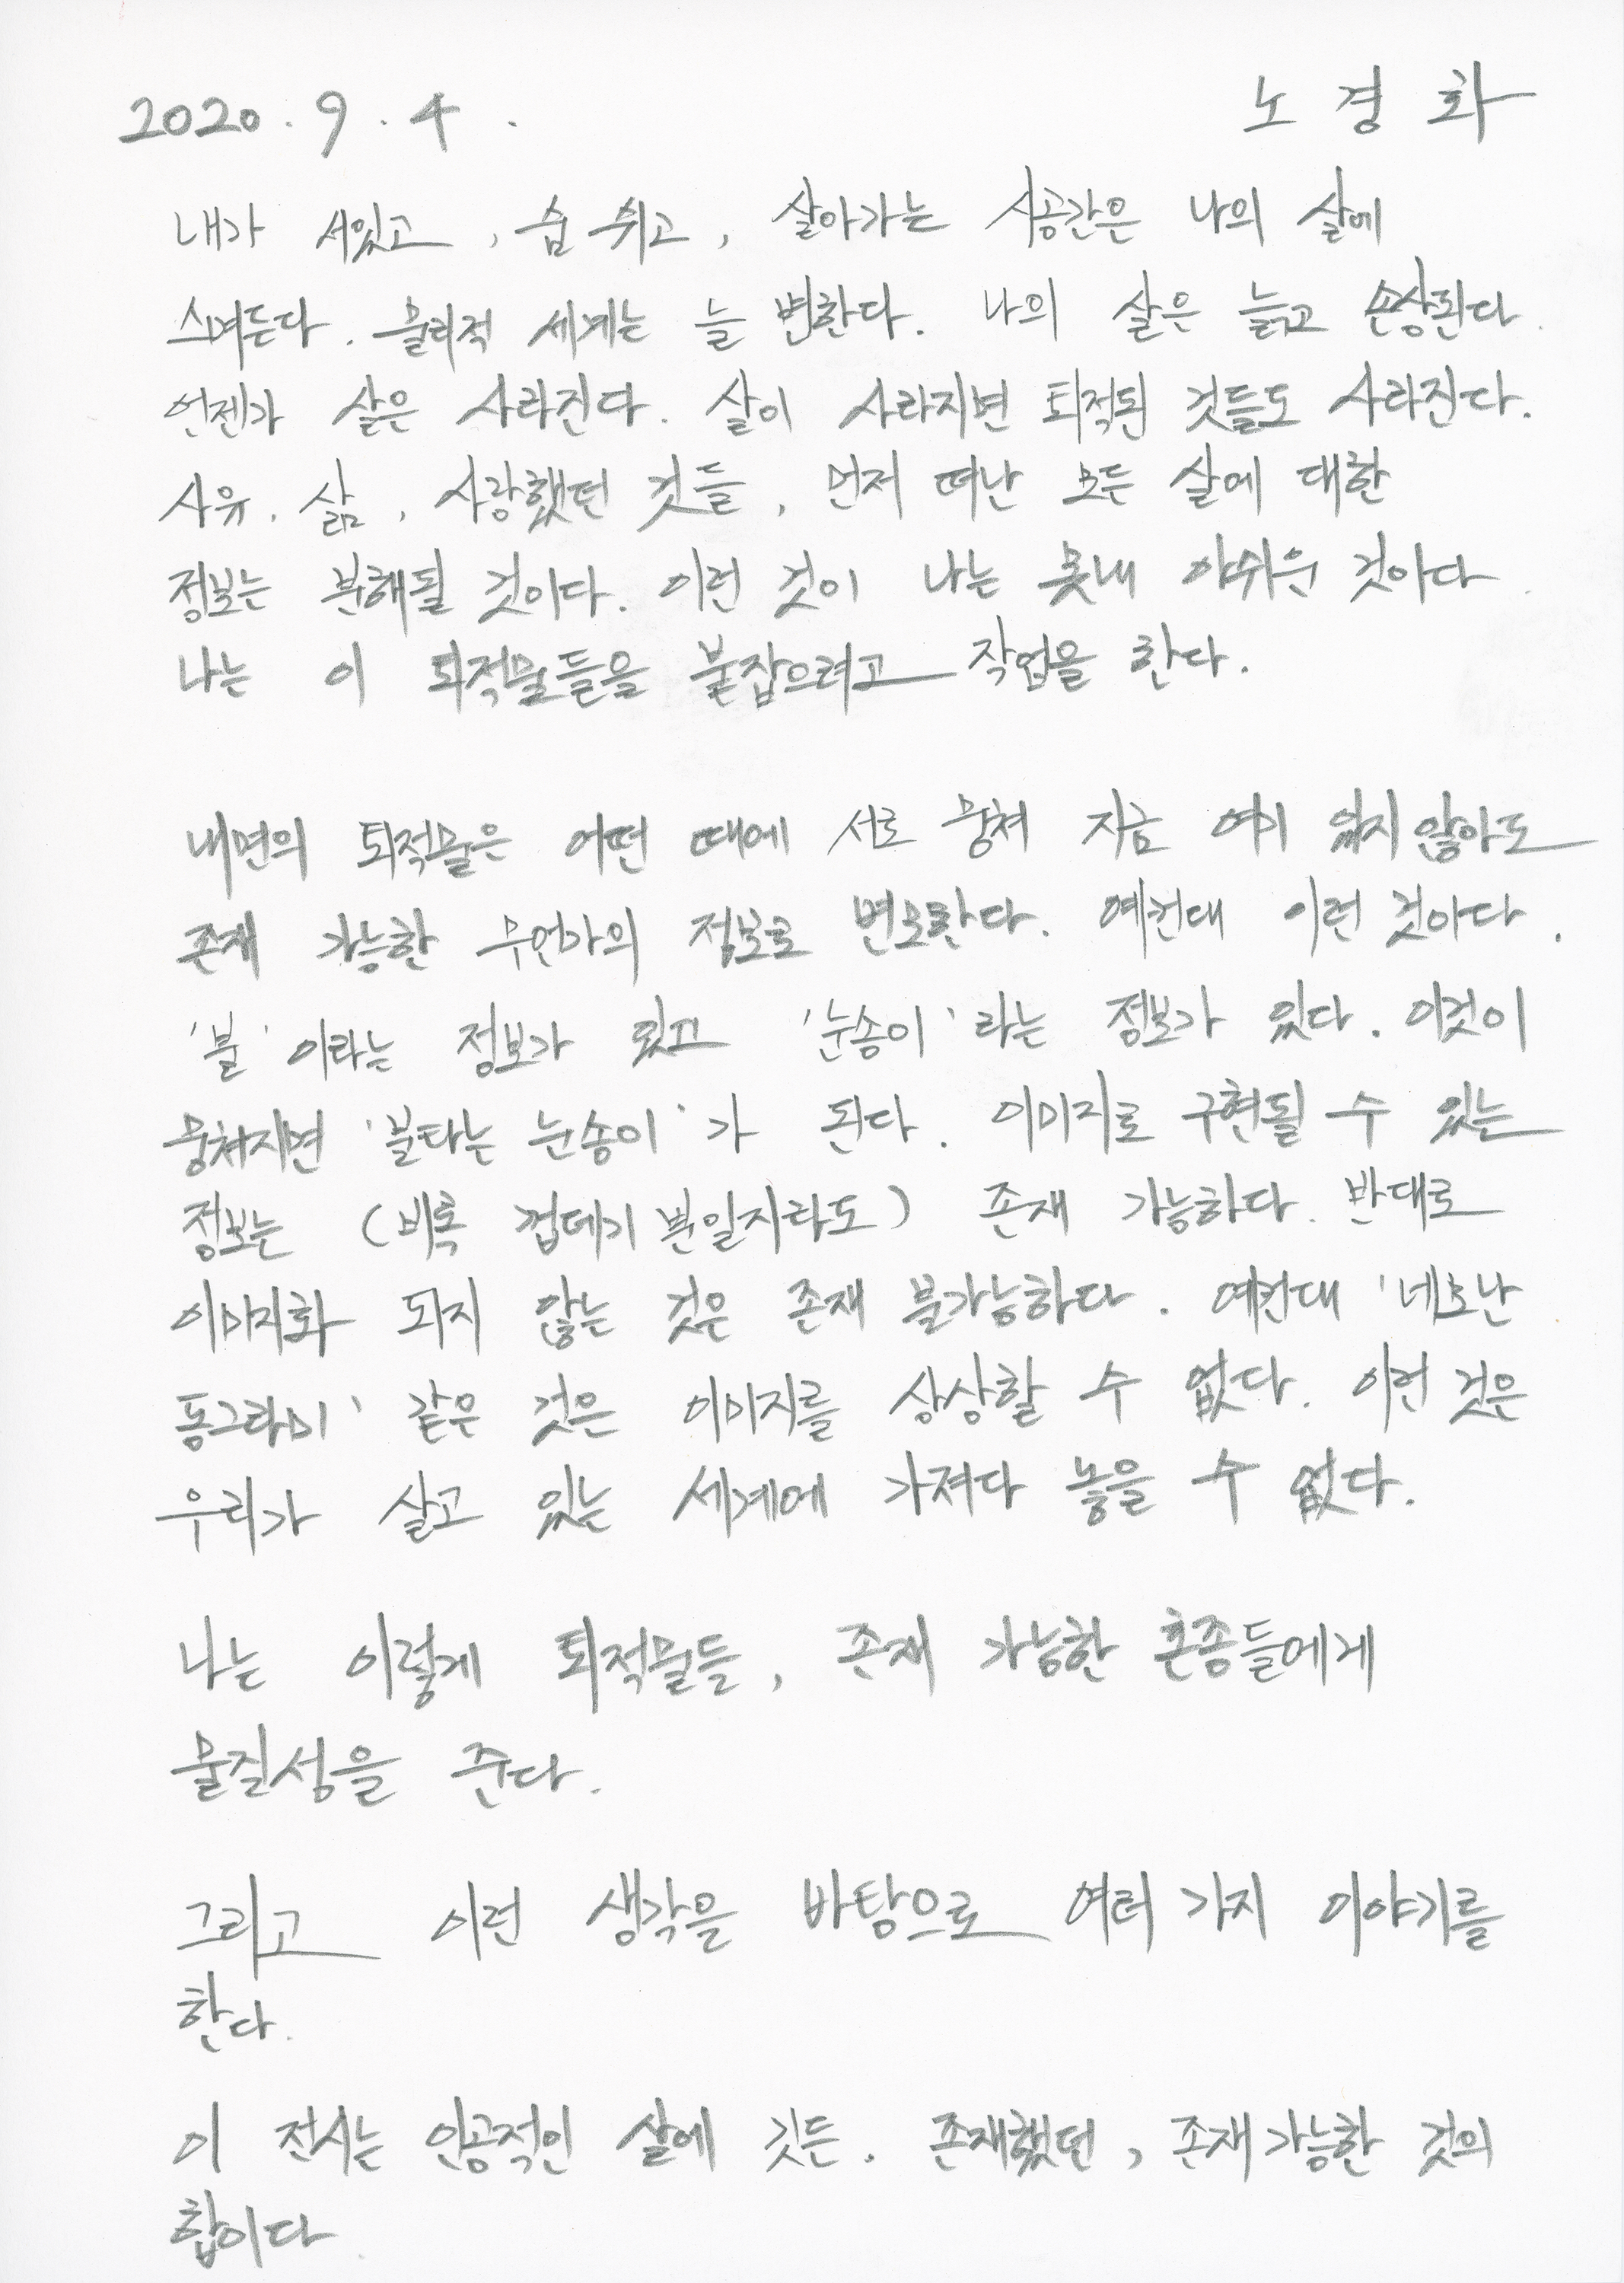 2020. 9. 4.
노경화
내가 서있고, 숨 쉬고, 살아가는 시공간은 나의 살에
스며든다. 물리적 세계는 늘 변한다. 나의 살은 늙고 손상된다.
언젠가 살은 사라진다. 살이 사라지면 퇴적된 것들도 사라진다.
사유, 삶, 사랑했던 것들, 먼저 떠난 모든 살에 대한
정보는 분해될 것이다. 이런 것이 나는 못내 아쉬운 것이다.
나는 이 퇴적물들을 붙잡으려고 작업을 한다.
내면의 퇴적물은 어떤 때에 서로 뭉쳐 지금 여기 있지 않아도
존재 가능한 무언가의 정보로 변모한다. 예컨대 이런 것이다.
'불'이라는 정보가 있고 '눈송이'라는 정보가 있다. 이것이
뭉쳐지면 '불타는 눈송이'가 된다. 이미지로 구현될 수 있는
정보는 (비록 껍데기 뿐일지라도) 존재 가능하다. 반대로
이미지화 되지 않는 것은 존재 불가능하다. 예컨대 '네모난
동그라미' 같은 것은 이미지를 상상할 수 없다. 이런 것은
우리가 살고 있는 세계에 가져다 놓을 수 없다.
나는 이렇게 퇴적물들, 존재 가능한 혼종들에게
물질성을 준다.
그리고 이런 생각을 바탕으로 여러 가지 이야기를
한다.
이 전시는 인공적인 살에 깃든, 존재했던, 존재 가능한 것의
합이다.